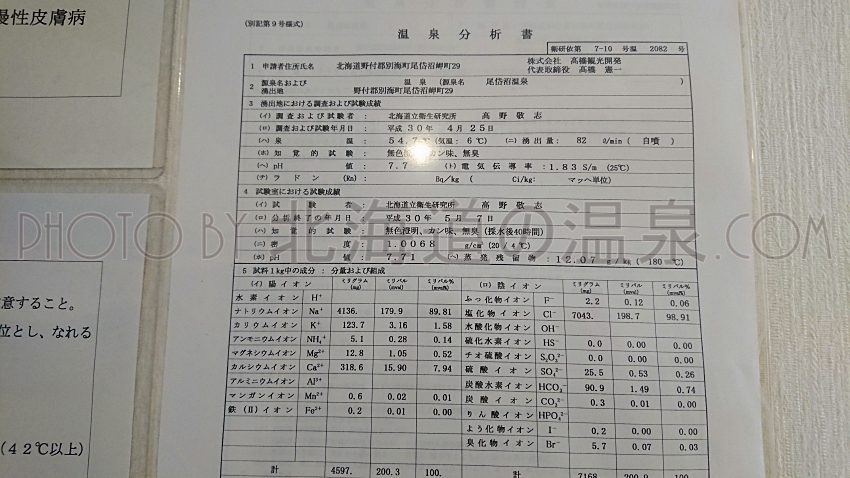 慢性皮膚病
意すること。
位とし、なれる
(42℃以上)
(別記第9号様式)
温泉分析書
衛研依第 7-10 号温 2082 号
1 申請者住所氏名 北海道野付郡別海町尾岱沼岬町29 株式会社 高橋観光開発
代表取締役 高橋 憲一
2 源泉名および湧出地 温泉(源泉名 尾岱沼温泉 )
野付郡別海町尾岱沼岬町29
3 湧出地における調査および試験成績
(イ)調査および試験者: 北海道立衛生研究所 高野敬志
(ロ)調査および試験年月日: 平成30年 4月25日
(ハ)泉温: 54.7℃(気温: 6℃) (ニ)湧出量: 82 ℓ/min(自噴)
(ホ)知覚的試験: 無色澄明、カン味、無臭
(ヘ)pH値: 7.7 (ト)電気伝導率:1.83 S/m (25℃)
(チ)ラドン(Rn): Bq/kg ( Ci/kg: マッヘ単位)
4 試験室における試験成績
(イ)試験者: 北海道立衛生研究所 高野敬志
(ロ)分析終了の年月日: 平成30年 5月 7日
(ハ)知覚的試験: 無色澄明、カン味、無臭(採水後40時間)
(ニ)密度: 1.0068 g/cm³(20/4℃)
(ホ)pH値: 7.71 (ヘ)蒸発残留物:12.07 g/kg(180℃)
5 試料1kg中の成分:分量および組成
(イ)陽イオン ミリグラム(mg) ミリバル(mval) ミリバル%(mval%) (ロ)陰イオン ミリグラム(mg) ミリバル(mval) ミリバル%(mval%)
水素イオン H⁺ ふっ化物イオン F⁻ 2.2 0.12 0.06
ナトリウムイオン Na⁺ 4136. 179.9 89.81 塩化物イオン Cl⁻ 7043. 198.7 98.91
カリウムイオン K⁺ 123.7 3.16 1.58 水酸化物イオン OH⁻
アンモニウムイオン NH₄⁺ 5.1 0.28 0.14 硫化水素イオン HS⁻ 0.0 0.00 0.00
マグネシウムイオン Mg²⁺ 12.8 1.05 0.52 チオ硫酸イオン S₂O₃²⁻ 0.0 0.00 0.00
カルシウムイオン Ca²⁺ 318.6 15.90 7.94 硫酸イオン SO₄²⁻ 25.5 0.53 0.26
アルミニウムイオン Al³⁺ 炭酸水素イオン HCO₃⁻ 90.9 1.49 0.74
マンガンイオン Mn²⁺ 0.6 0.02 0.01 炭酸イオン CO₃²⁻ 0.3 0.01 0.00
鉄(Ⅱ)イオン Fe²⁺ 0.2 0.01 0.00 りん酸イオン HPO₄²⁻
よう化物イオン I⁻ 0.2 0.00 0.00
臭化物イオン Br⁻ 5.7 0.07 0.03
計 4597. 200.3 100. 計 7168. 200.9 100.
PHOTO BY 北海道の温泉.COM